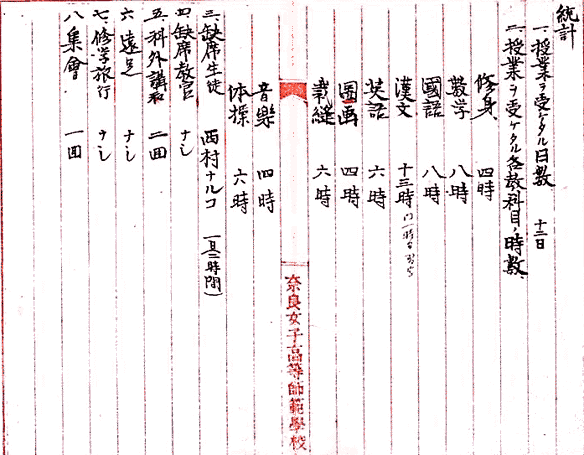 統計
一、授業ヲ受ケタル日数 十二日
二、授業ヲ受ケタル各教科目ノ時数
修身 四時
数学 八時
國語 八時
漢文 十三時
英語 六時
圖画 四時
裁縫 六時
音樂 四時
体操 六時
三、缺席生徒 西村ナルコ
四、缺席教官 ナシ
五、科外講義 二回
六、遠足 ナシ
七、修学旅行 ナシ
八、集會 一回
奈良女子高等師範學校